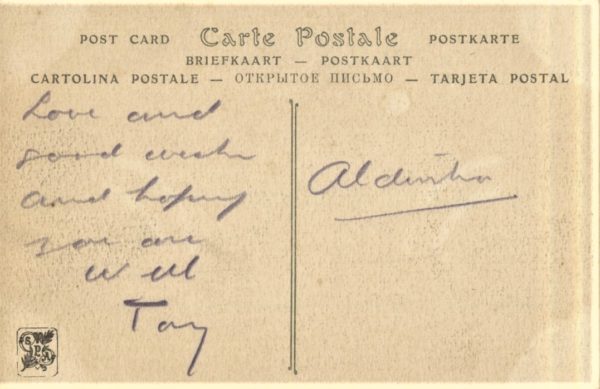 POST CARD Carte Postale POSTKARTE
BRIEFKAART — POSTKAART
CARTOLINA POSTALE — ОТКРЫТОЕ ПИСЬМО — TARJETA POSTAL
Love and
good wishes
and hoping
you are
well
Tay
SPA